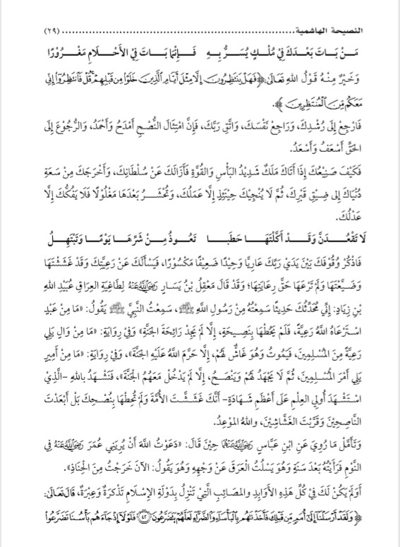 النصيحة الهاشمية ........................................ (٢٩)
مَنْ بَاتَ بَعْدَكَ فِي مُلْكٍ يُسَرُّ بِهِ فَإِنَّمَا بَاتَ فِي الأَحْلَامِ مَغْرُورًا
وَخَيْرٌ مِنْهُ قَوْلُ اللهِ تَعَالَى: ﴿فَهَلْ يَنتَظِرُونَ إِلَّا مِثْلَ أَيَّامِ الَّذِينَ خَلَوْا مِن قَبْلِهِمْ قُلْ فَانتَظِرُوا إِنِّي
مَعَكُم مِّنَ الْمُنتَظِرِينَ﴾.
فَارْجِعْ إِلَى رُشْدِكَ، وَرَاجِعْ نَفْسَكَ، وَاتَّقِ رَبَّكَ، فَإِنَّ امْتِثَالَ النُّصْحِ أَمْدَحُ وَأَحْمَدُ، وَالرُّجُوعَ إِلَى
الحَقِّ أَسْعَفُ وَأَسْعَدُ.
فَكَيْفَ صَنِيعُكَ إِذَا أَتَاكَ مَلَكٌ شَدِيدُ البَأْسِ وَالقُوَّةِ فَأَزَالَكَ عَنْ سُلْطَانِكَ، وَأَخْرَجَكَ مِنْ سَعَةِ
دُنْيَاكَ إِلَى ضِيقِ قَبْرِكَ، ثُمَّ لَا يُنْجِيكَ حِينَئِذٍ إِلَّا عَمَلُكَ، وَتُحْشَرُ بَعْدَهَا مَغْلُولًا فَلَا يَفُكُّكَ إِلَّا
عَدْلُكَ.
لَا تَقْعُدَنَّ وَقَدْ أَكَلْتَهَا حَطَبًا تَعُوذُ مِنْ شَرِّهَا يَوْمًا وَتَبْتَهِلُ
فَاذْكُرْ وُقُوفَكَ بَيْنَ يَدَيْ رَبِّكَ عَارِيًا وَحِيدًا ضَعِيفًا مَكْسُورًا، فَيَسْأَلُكَ عَنْ رَعِيَّتِكَ وَقَدْ غَشَشْتَهَا
وَضَيَّعْتَهَا وَلَمْ تَرْعَهَا حَقَّ رِعَايَتِهَا؛ وَقَدْ قَالَ مَعْقِلُ بْنُ يَسَارٍ رَضِيَ اللهُ عَنْهُ لِطَاغِيَةِ العِرَاقِ عُبَيْدِ اللهِ
بْنِ زِيَادٍ: إِنِّي مُحَدِّثُكَ حَدِيثًا سَمِعْتُهُ مِنْ رَسُولِ اللهِ ﷺ، سَمِعْتُ النَّبِيَّ ﷺ يَقُولُ: «مَا مِنْ عَبْدٍ
اسْتَرْعَاهُ اللهُ رَعِيَّةً، فَلَمْ يَحُطْهَا بِنَصِيحَةٍ، إِلَّا لَمْ يَجِدْ رَائِحَةَ الجَنَّةِ» وَفِي رِوَايَةٍ: «مَا مِنْ وَالٍ يَلِي
رَعِيَّةً مِنَ المُسْلِمِينَ، فَيَمُوتُ وَهُوَ غَاشٌّ لَهُمْ، إِلَّا حَرَّمَ اللهُ عَلَيْهِ الجَنَّةَ»، وَفِي رِوَايَةٍ: «مَا مِنْ أَمِيرٍ
يَلِي أَمْرَ المُسْلِمِينَ، ثُمَّ لَا يَجْهَدُ لَهُمْ وَيَنْصَحُ، إِلَّا لَمْ يَدْخُلْ مَعَهُمُ الجَنَّةَ»، فَنَشْهَدُ بِاللهِ -الَّذِي
اسْتَشْهَدَ أُولِي العِلْمِ عَلَى أَعْظَمِ شَهَادَةٍ- أَنَّكَ غَشَشْتَ الأُمَّةَ وَلَمْ تُحِطْهَا بِنُصْحِكَ بَلْ أَبْعَدْتَ
النَّاصِحِينَ وَقَرَّبْتَ الغَشَّاشِينَ، وَاللهُ المَوْعِدُ.
وَتَأَمَّلْ مَا رُوِيَ عَنِ ابْنِ عَبَّاسٍ رَضِيَ اللهُ عَنْهُمَا حِينَ قَالَ: «دَعَوْتُ اللهَ أَنْ يُرِيَنِي عُمَرَ رَضِيَ اللهُ عَنْهُ فِي
النَّوْمِ فَرَأَيْتُهُ بَعْدَ سَنَةٍ وَهُوَ يَسْلُتُ العَرَقَ عَنْ وَجْهِهِ وَهُوَ يَقُولُ: الآنَ خَرَجْتُ مِنَ الحِنَاذِ».
أَوَلَمْ يَكُنْ لَكَ فِي كُلِّ هَذِهِ الأَوَابِدِ وَالمَصَائِبِ الَّتِي تَنْزِلُ بِدَوْلَةِ الإِسْلَامِ تَذْكِرَةٌ وَعِبْرَةٌ، قَالَ تَعَالَى:
﴿وَلَقَدْ أَرْسَلْنَا إِلَىٰ أُمَمٍ مِّن قَبْلِكَ فَأَخَذْنَاهُم بِالْبَأْسَاءِ وَالضَّرَّاءِ لَعَلَّهُمْ يَتَضَرَّعُونَ ۝٤٢ فَلَوْلَا إِذْ جَاءَهُم بَأْسُنَا تَضَرَّعُوا